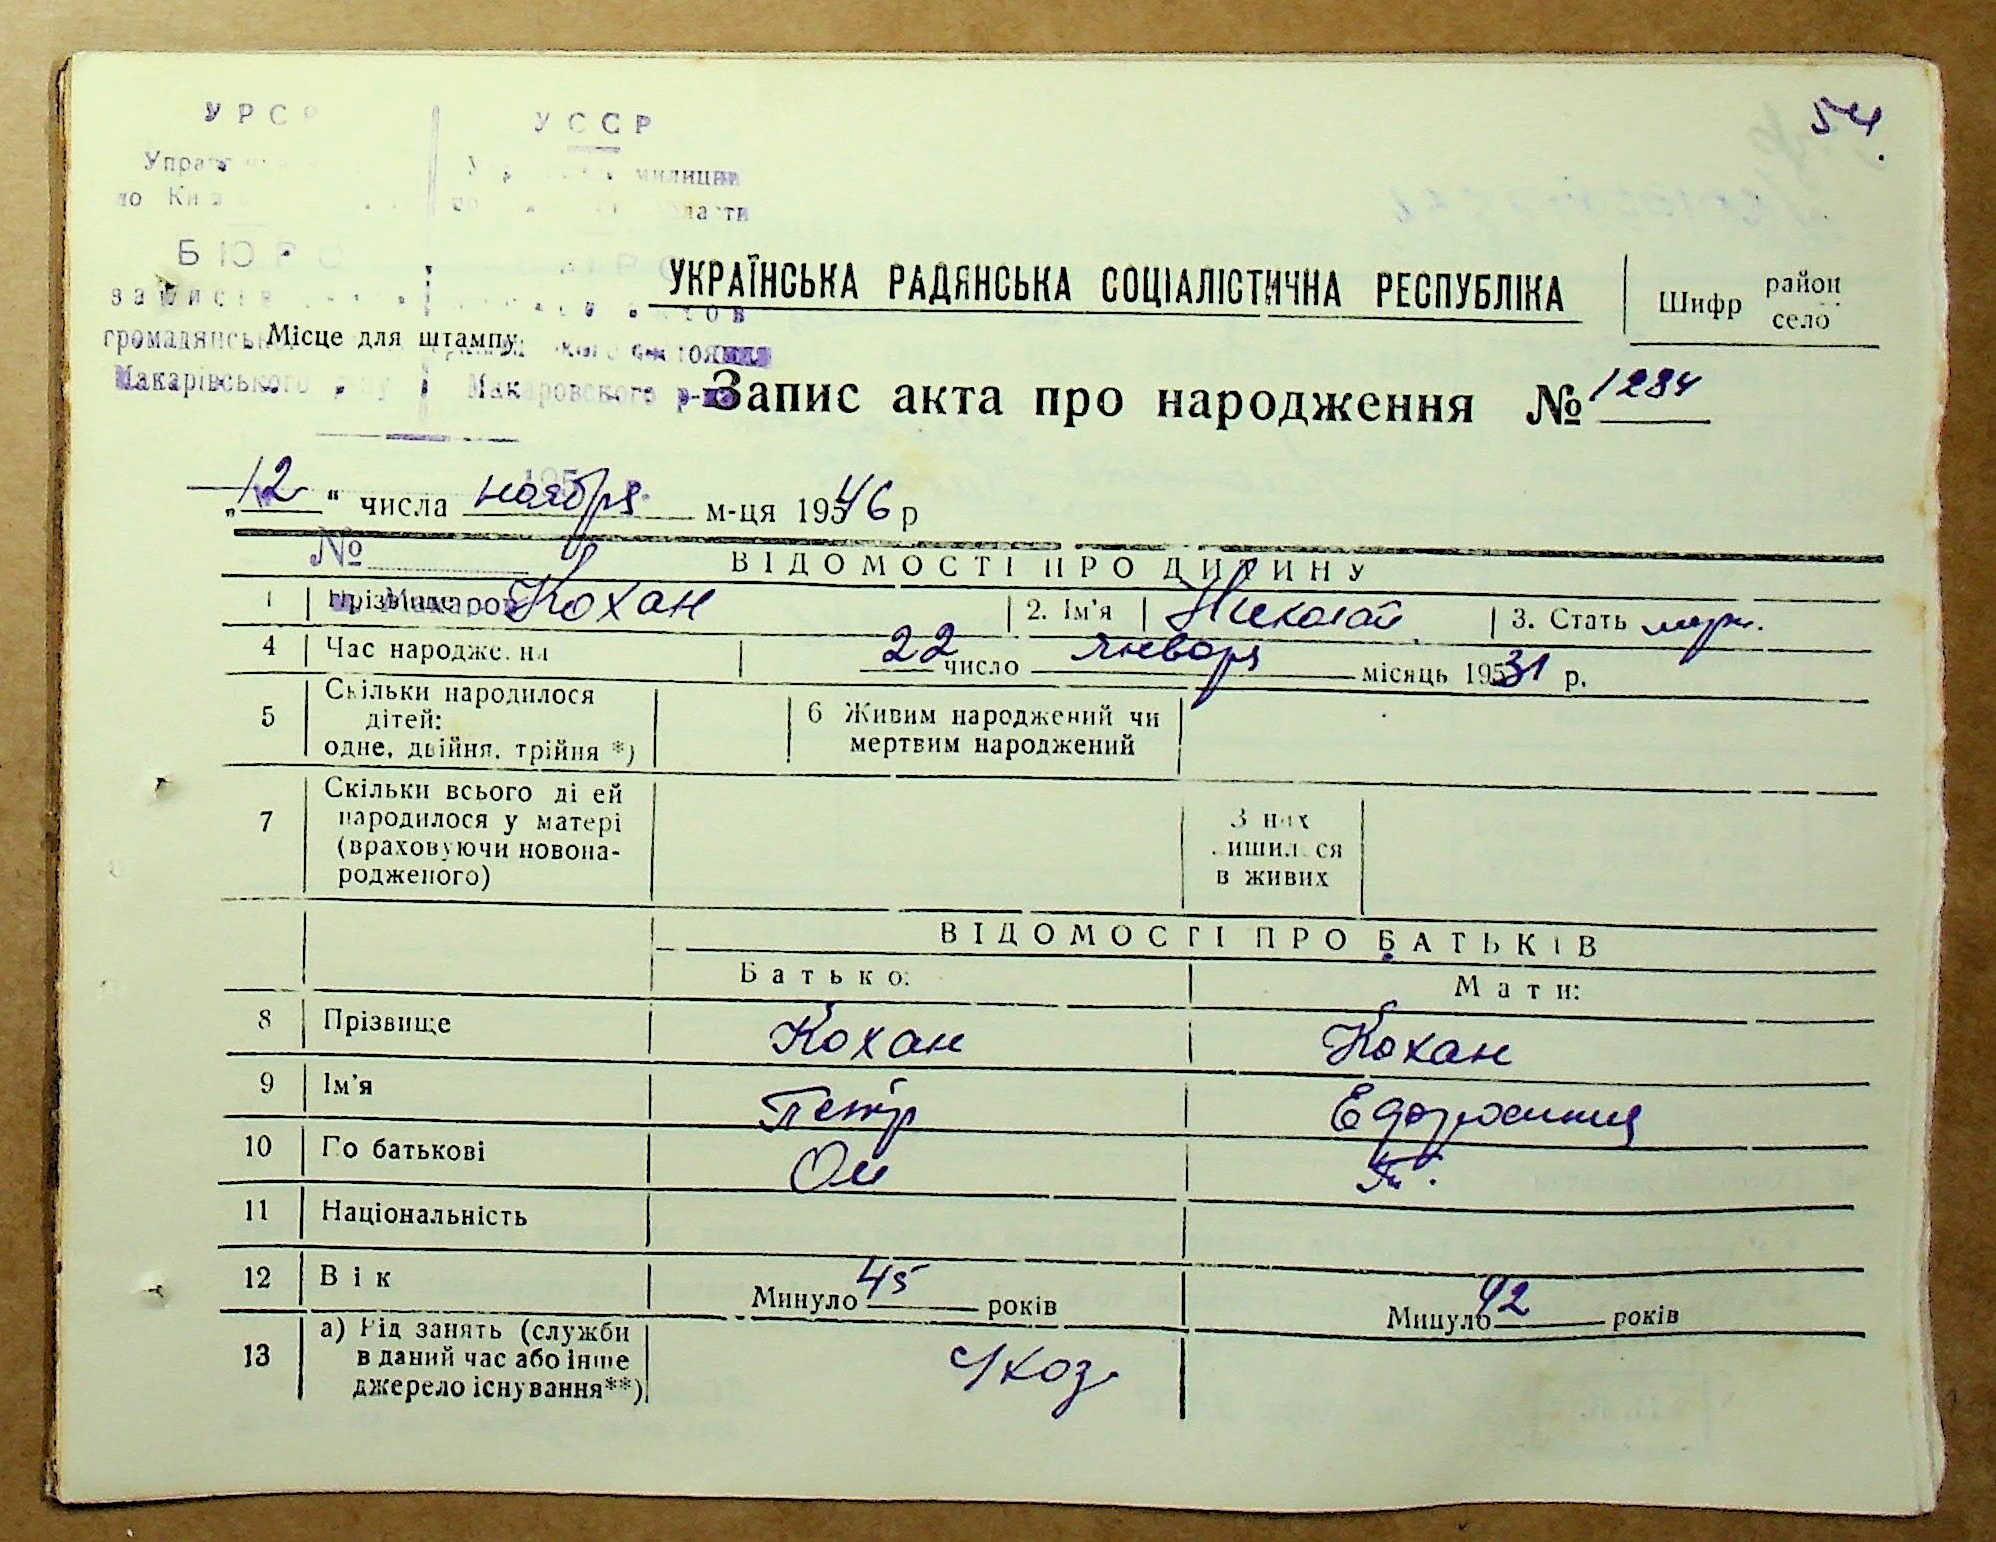 54.
УРСР УССР
милиции
БЮРО
УКРАЇНСЬКА РАДЯНСЬКА СОЦІАЛІСТИЧНА РЕСПУБЛІКА
Шифр район село
Місце для штампу
Макарівського Макаровского
Запис акта про народження № 1284
„12“ числа ноября м-ця 1946 р
№
ВІДОМОСТІ ПРО ДИТИНУ
1 Прізвище Кохан 2. Ім'я Николай 3. Стать муж.
4 Час народження 22 число января місяць 1931 р.
5 Скільки народилося дітей: одне, двійня, трійня *)
6 Живим народжений чи мертвим народжений
7 Скільки всього дітей народилося у матері (враховуючи новонародженого)
З них лишилося в живих
ВІДОМОСТІ ПРО БАТЬКІВ
Батько: Мати:
8 Прізвище Кохан Кохан
9 Ім'я Петр
10 По батькові Ом Т.
11 Національність
12 Вік Минуло 45 років Минуло 42 років
13 а) Рід занять (служби в даний час або інше джерело існування**) с/хоз.